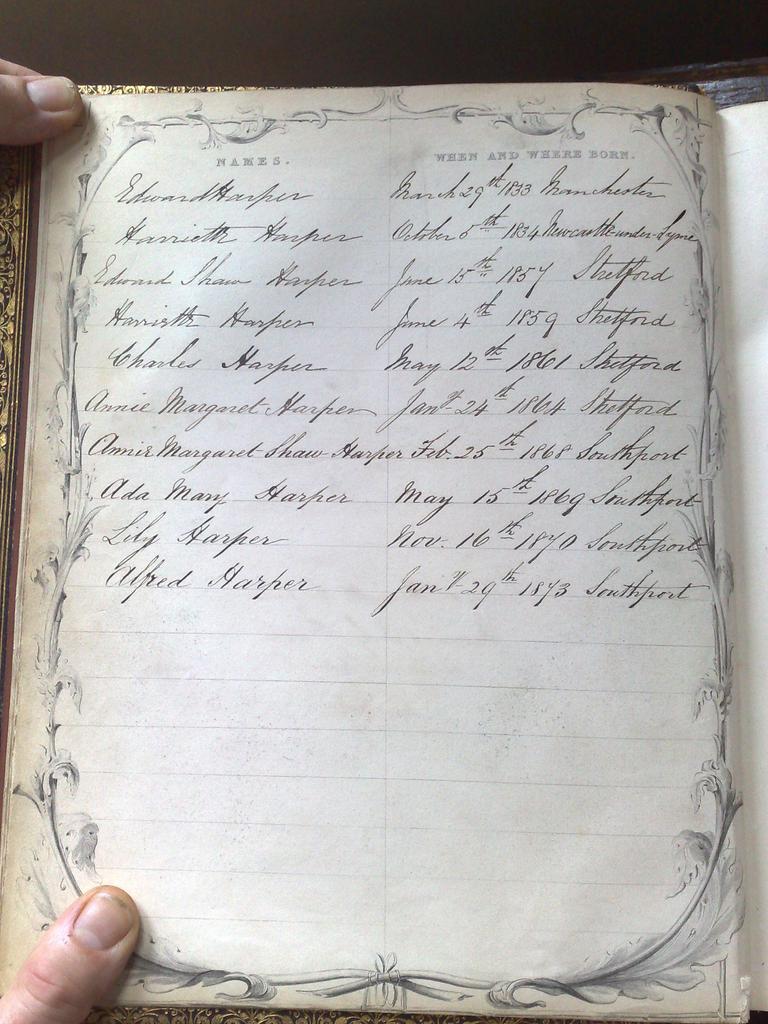 NAMES. WHEN AND WHERE BORN.
Edward Harper March 29th 1833 Manchester
Harrieth Harper October 5th 1834 Newcastle-under-Lyme
Edward Shaw Harper June 15th 1857 Stretford
Harrieth Harper June 4th 1859 Stretford
Charles Harper May 12th 1861 Stretford
Annie Margaret Harper Jany 24th 1864 Stretford
Annie Margaret Shaw Harper Feb. 25th 1868 Southport
Ada Mary Harper May 15th 1869 Southport
Lily Harper Nov. 16th 1870 Southport
Alfred Harper Jany 29th 1873 Southport